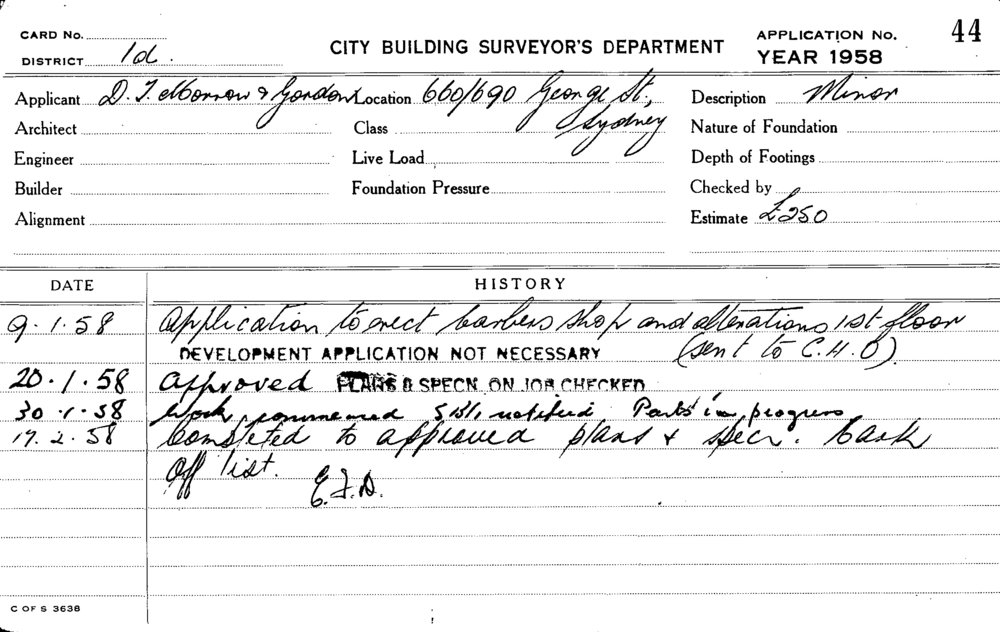 CARD No. CITY BUILDING SURVEYOR'S DEPARTMENT APPLICATION No. 44
DISTRICT 1d. YEAR 1958
Applicant D. T. Morrow & Gordon Location 660/690 George St., Sydney Description Minor
Architect Class Nature of Foundation
Engineer Live Load Depth of Footings
Builder Foundation Pressure Checked by
Alignment Estimate £250
DATE HISTORY
9.1.58 Application to erect barbers shop and alterations 1st floor
DEVELOPMENT APPLICATION NOT NECESSARY (sent to C.H.O).
20.1.58 Approved PLANS & SPECN. ON JOB CHECKED
30.1.58 Work commenced notified Parts in progress
17.2.58 Completed to approved plans & specn. Card
off list. E.J.D.
C OF S 3638